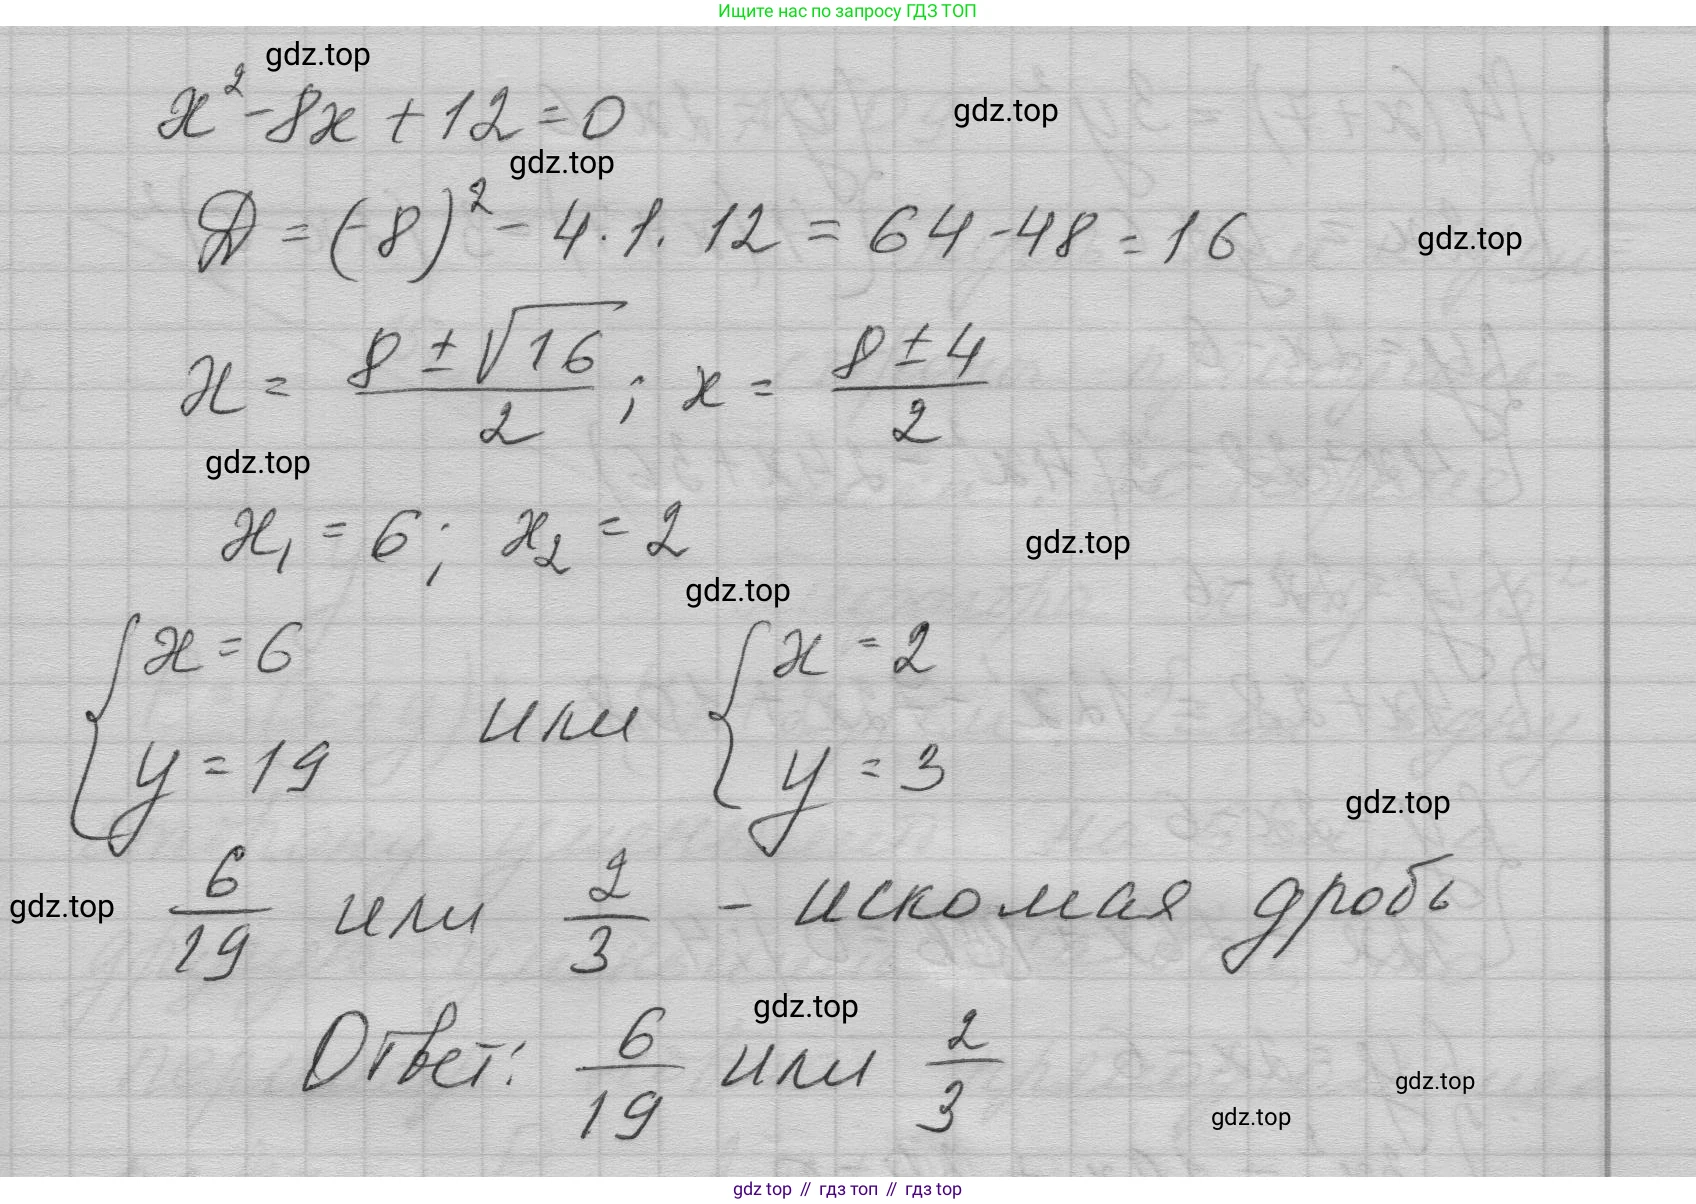 Ищите нас по запросу ГДЗ ТОП
gdz.top
x² - 8x + 12 = 0
gdz.top
gdz.top
Д = (-8)² - 4 · 1 · 12 = 64 - 48 = 16
gdz.top
x = (8 ± √16)/2 ; x = (8 ± 4)/2
gdz.top
x₁ = 6; x₂ = 2
gdz.top
gdz.top
{ x = 6 или { x = 2
y = 19 y = 3
gdz.top
gdz.top
6/19 или 2/3 - искомая дробь
gdz.top
Ответ: 6/19 или 2/3
gdz.top
gdz.top
gdz top // гдз топ // гдз top